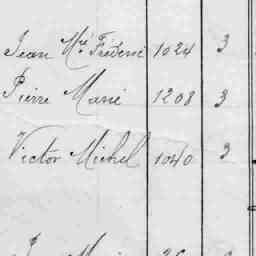 Jean Mie Frédéric 1024 3
Pierre Marie 1208 3
Victor Michel 1040 3